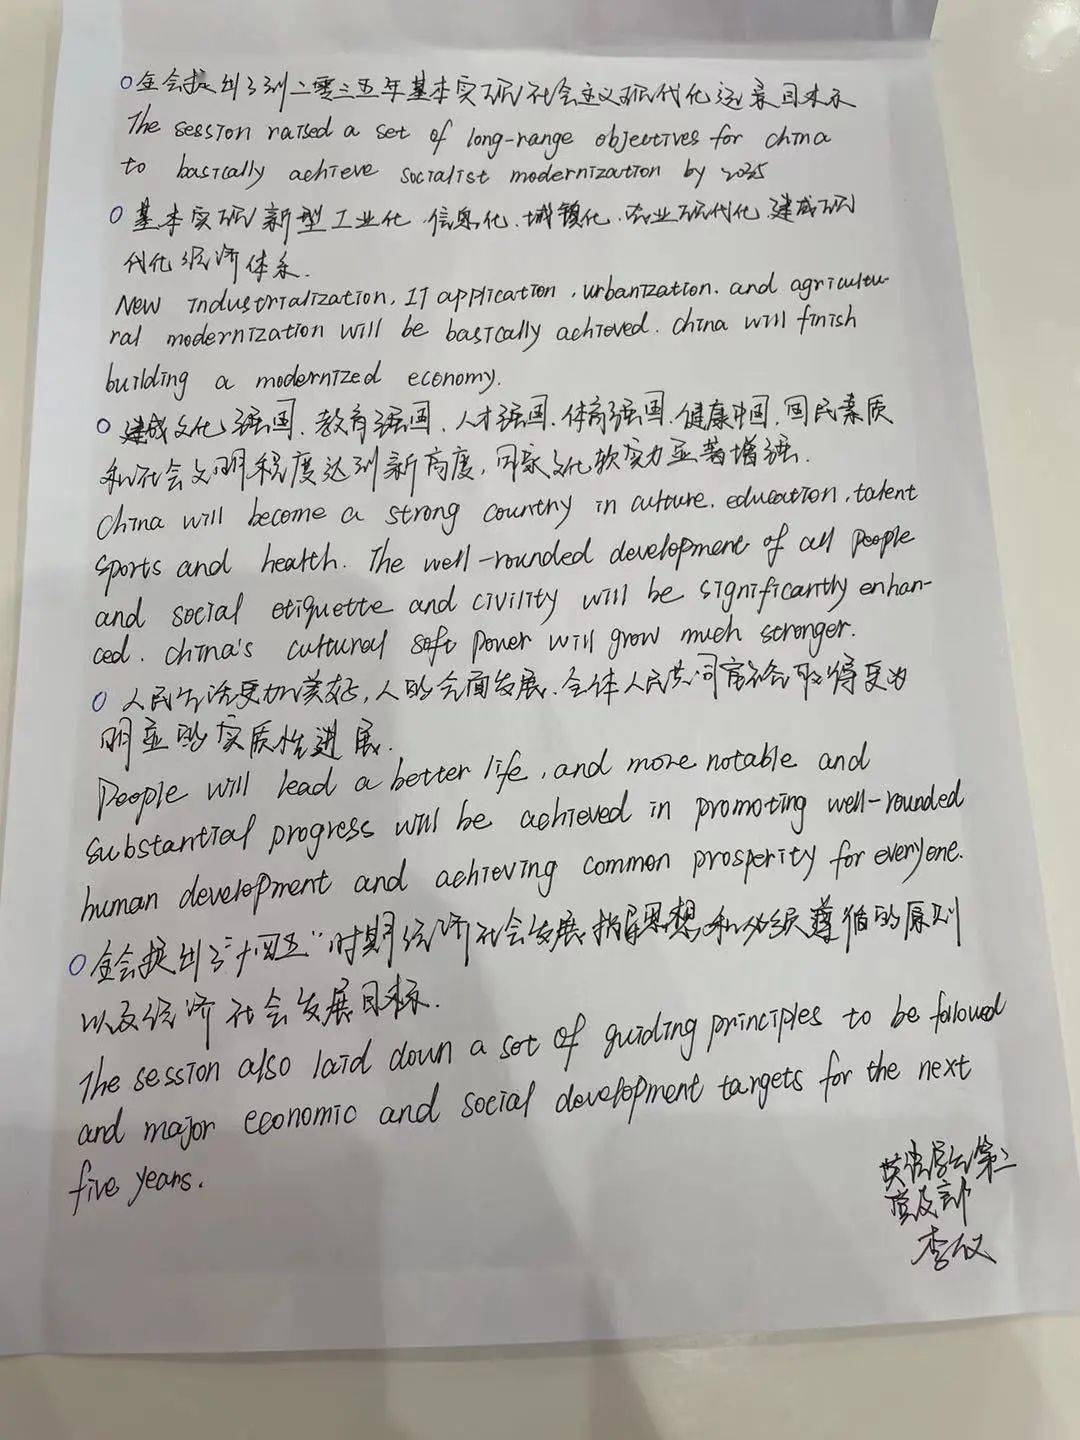 全会提出了到二零三五年基本实现社会主义现代化远景目标
The session raised a set of long-range objectives for China
to basically achieve socialist modernization by 2035
基本实现新型工业化.信息化.城镇化.农业现代化.建成现
代化经济体系.
New industrialization, IT application, urbanization. and agricultu-
ral modernization will be basically achieved. China will finish
building a modernized economy.
建成文化强国.教育强国.人才强国.体育强国.健康中国.国民素质
和社会文明程度达到新高度,国家文化软实力显著增强.
China will become a strong country in culture. education, talent
sports and health. The well-rounded development of all people
and social etiquette and civility will be significantly enhan-
ced. China's cultural soft power will grow much stronger.
人民生活更加美好,人的全面发展.全体人民共同富裕取得更为
明显的实质性进展.
People will lead a better life, and more notable and
substantial progress will be achieved in promoting well-rounded
human development and achieving common prosperity for everyone.
全会提出了"十四五"时期经济社会发展指导思想和必须遵循的原则
以及经济社会发展目标.
The session also laid down a set of guiding principles to be followed
and major economic and social development targets for the next
five years.
英语学院第二
党支部
李